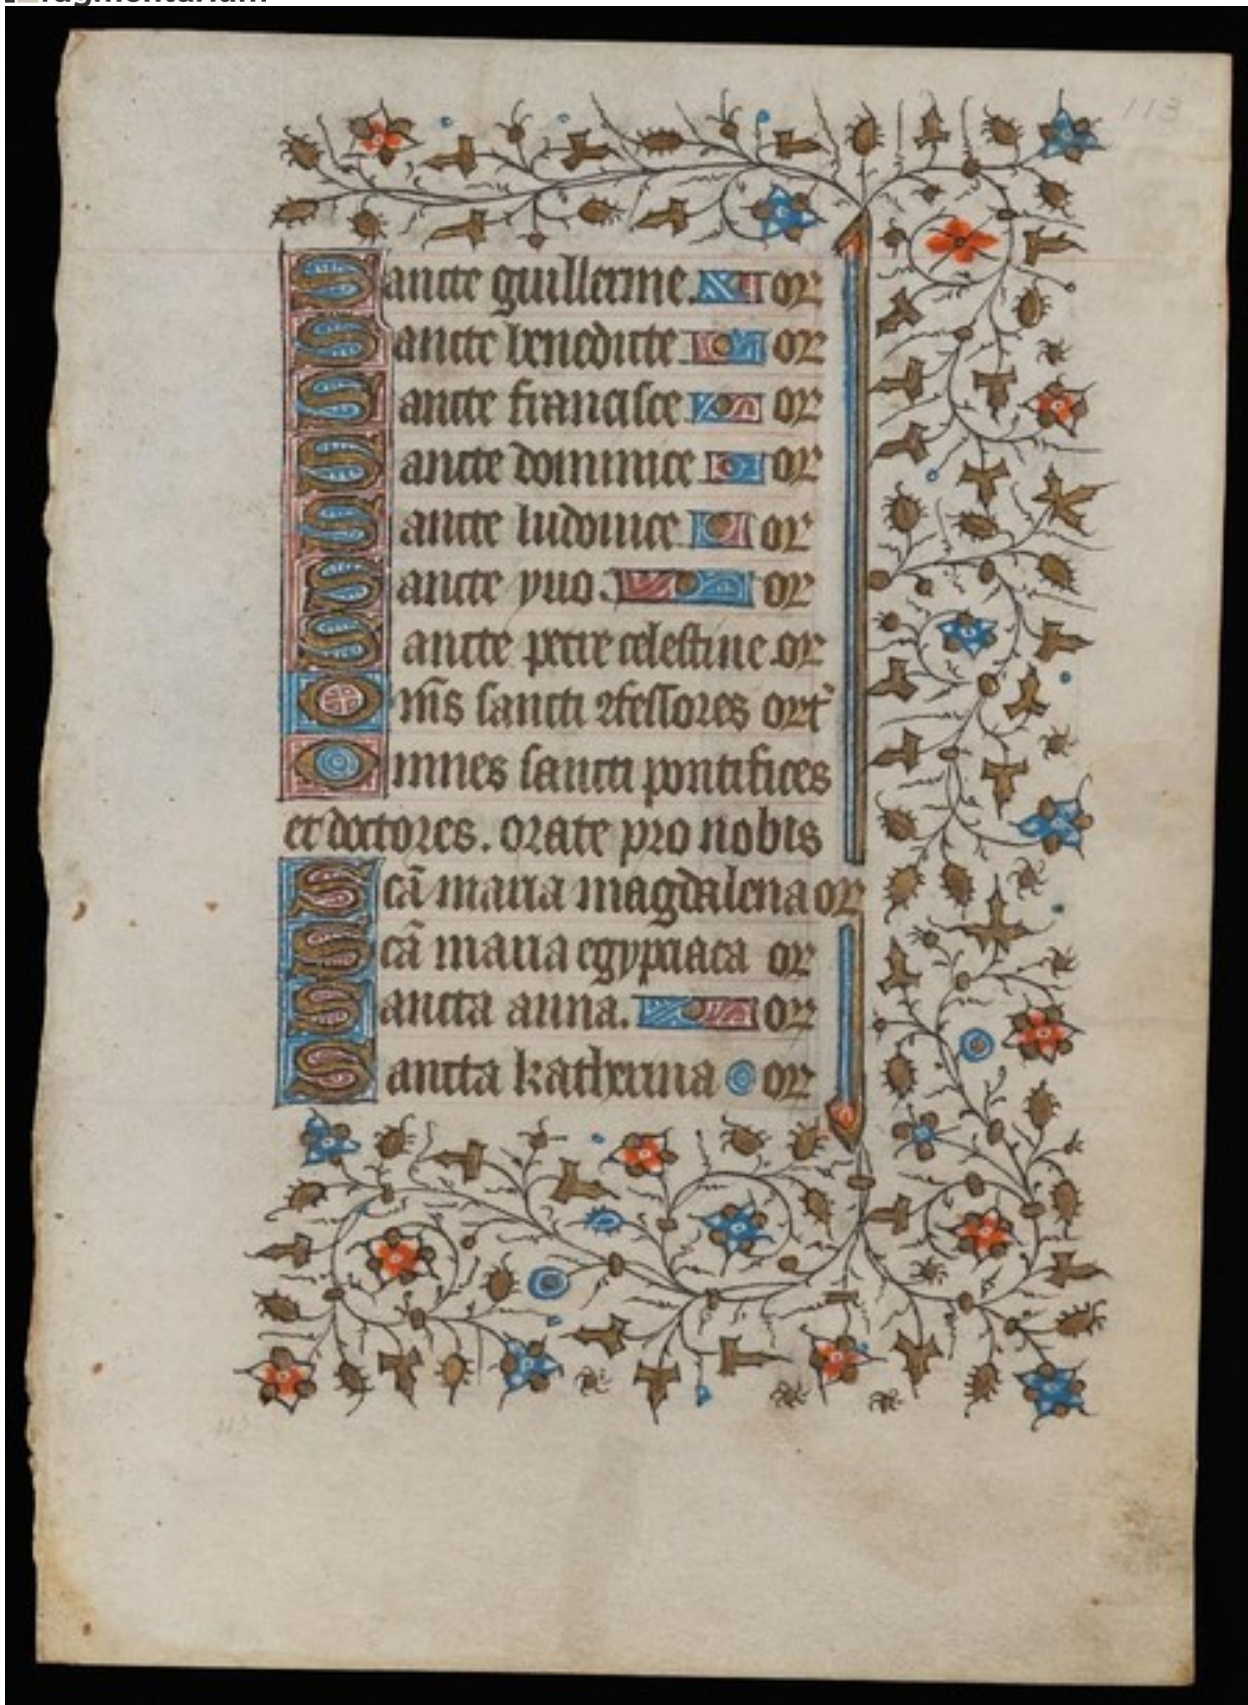 113
Sancte guillerme. or
Sancte benedicte or
Sancte francisce or
Sancte dominice or
Sancte ludouice or
Sancte yuo. or
Sancte petre celestine or
Om̄s sancti ꝯfessores ort̉
Omnes sancti pontifices
et doctores. orate pro nobis
Scā maria magdalena or
Scā maria egyptiaca or
Sancta anna. or
Sancta katherina or